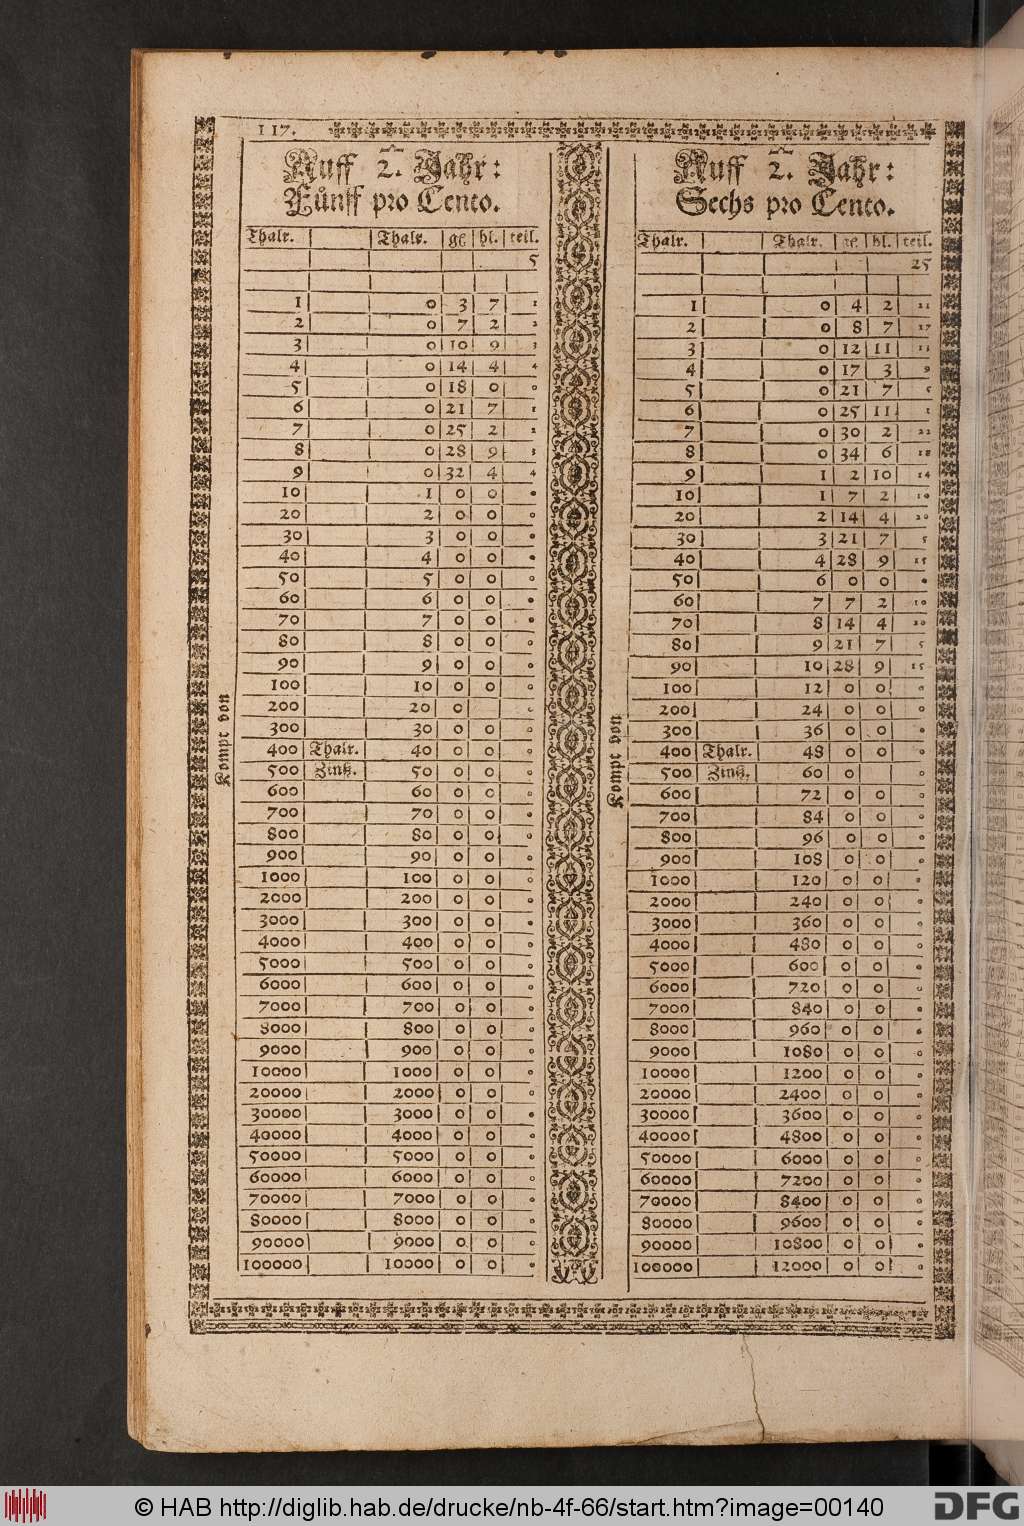 117.
Auff 2. Jahr:
Fünff pro Cento.
Thalr. Thalr. gl hl. teil.
5
1 0 3 7 1
2 0 7 2 2
3 0 10 9 3
4 0 14 4 4
5 0 18 0 0
6 0 21 7 1
7 0 25 2 2
8 0 28 9 3
9 0 32 4 4
10 1 0 0 0
20 2 0 0 0
30 3 0 0 0
40 4 0 0 0
50 5 0 0 0
60 6 0 0 0
70 7 0 0 0
80 8 0 0 0
90 9 0 0 0
100 10 0 0 0
200 20 0 0
300 30 0 0 0
400 Thalr. 40 0 0 0
500 Zinß. 50 0 0 0
600 60 0 0 0
700 70 0 0 0
800 80 0 0 0
900 90 0 0 0
1000 100 0 0 0
2000 200 0 0 0
3000 300 0 0 0
4000 400 0 0 0
5000 500 0 0 0
6000 600 0 0 0
7000 700 0 0 0
8000 800 0 0 0
9000 900 0 0 0
10000 1000 0 0 0
20000 2000 0 0 0
30000 3000 0 0 0
40000 4000 0 0 0
50000 5000 0 0 0
60000 6000 0 0 0
70000 7000 0 0 0
80000 8000 0 0 0
90000 9000 0 0 0
100000 10000 0 0 0
Kompt von
Auff 2. Jahr:
Sechs pro Cento.
Thalr. Thalr. gl hl. teil.
25
1 0 4 2 21
2 0 8 7 17
3 0 12 11 13
4 0 17 3 9
5 0 21 7 5
6 0 25 11 1
7 0 30 2 22
8 0 34 6 18
9 1 2 10 14
10 1 7 2 10
20 2 14 4 20
30 3 21 7 5
40 4 28 9 15
50 6 0 0 0
60 7 7 2 10
70 8 14 4 20
80 9 21 7 5
90 10 28 9 15
100 12 0 0 0
200 24 0 0 0
300 36 0 0 0
400 Thalr. 48 0 0 0
500 Zinß. 60 0 0
600 72 0 0 0
700 84 0 0 0
800 96 0 0 0
900 108 0 0 0
1000 120 0 0 0
2000 240 0 0 0
3000 360 0 0 0
4000 480 0 0 0
5000 600 0 0 0
6000 720 0 0 0
7000 840 0 0 0
8000 960 0 0 0
9000 1080 0 0 0
10000 1200 0 0 0
20000 2400 0 0 0
30000 3600 0 0 0
40000 4800 0 0 0
50000 6000 0 0 0
60000 7200 0 0 0
70000 8400 0 0 0
80000 9600 0 0 0
90000 10800 0 0 0
100000 12000 0 0 0
Kompt von
© HAB http://diglib.hab.de/drucke/nb-4f-66/start.htm?image=00140
DFG